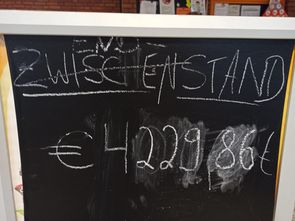 END-
ZWISCHENSTAND
€ 4229,86 €